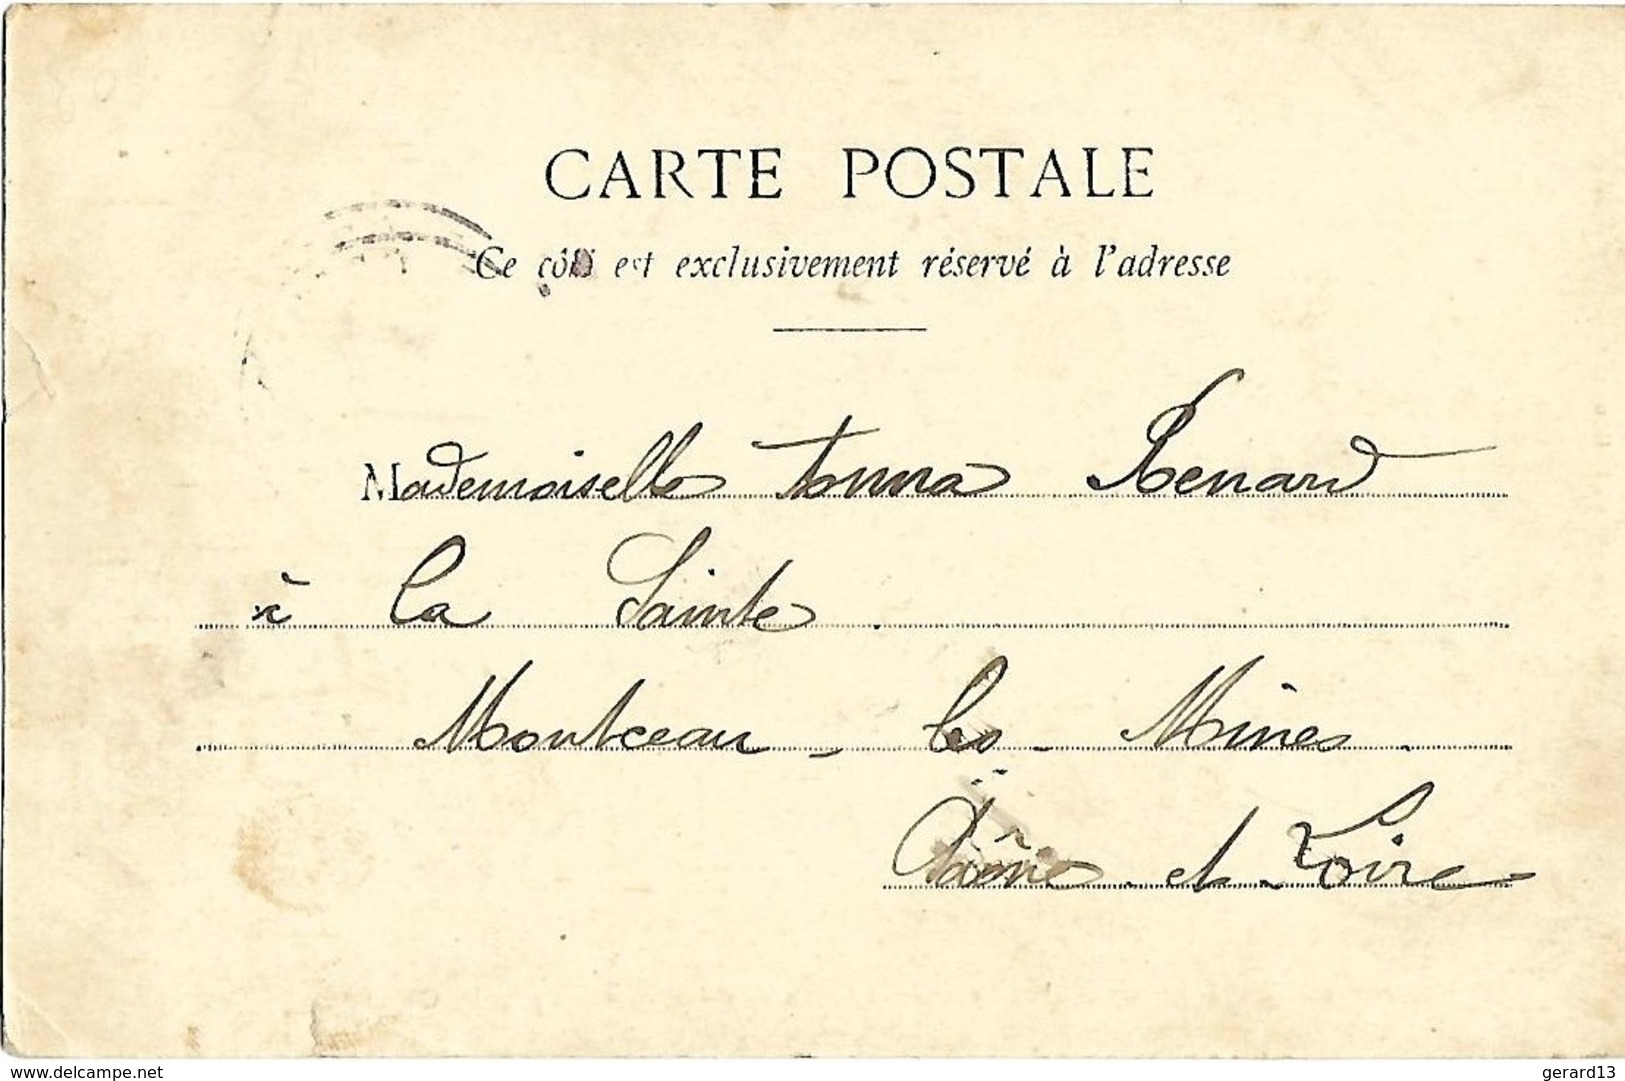 CARTE POSTALE
Ce côté est exclusivement réservé à l'adresse
Mademoiselle Anna Renard
à La Sainte
Montceau - les - Mines
Saône - et - Loire
www.delcampe.net
gerard13